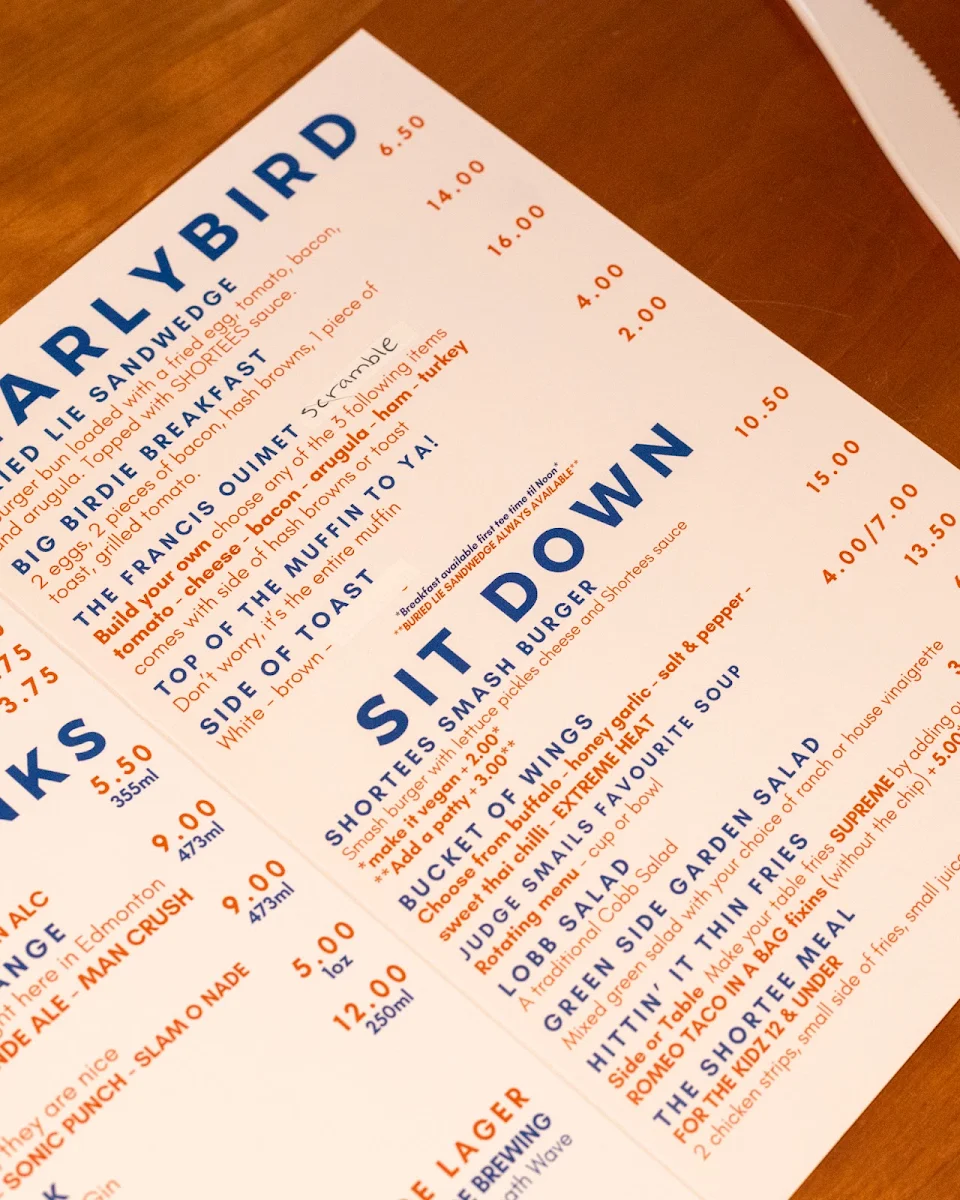 ARLYBIRD
RIED LIE SANDWEDGE 6.50
urger bun loaded with a fried egg, tomato, bacon,
and arugula. Topped with SHORTEES sauce.
BIG BIRDIE BREAKFAST 14.00
2 eggs, 2 pieces of bacon, hash browns, 1 piece of
toast, grilled tomato.
THE FRANCIS OUIMET scramble 16.00
Build your own choose any of the 3 following items
tomato - cheese - bacon - arugula - ham - turkey
comes with side of hash browns or toast
TOP OF THE MUFFIN TO YA! 4.00
Don't worry, it's the entire muffin
SIDE OF TOAST 2.00
White - brown -
*Breakfast available first tee time til Noon*
**BURIED LIE SANDWEDGE ALWAYS AVAILABLE**
SIT DOWN
SHORTEES SMASH BURGER 10.50
Smash burger with lettuce pickles cheese and Shortees sauce
*make it vegan + 2.00*
**Add a patty + 3.00**
BUCKET OF WINGS 15.00
Choose from buffalo - honey garlic - salt & pepper -
sweet thai chilli - EXTREME HEAT
JUDGE SMAILS FAVOURITE SOUP 4.00/7.00
Rotating menu - cup or bowl
LOBB SALAD 13.50
A traditional Cobb Salad
GREEN SIDE GARDEN SALAD
Mixed green salad with your choice of ranch or house vinaigrette
HITTIN' IT THIN FRIES 3
Side or Table Make your table fries SUPREME by adding
ROMEO TACO IN A BAG fixins (without the chip) + 5.00
THE SHORTEE MEAL
FOR THE KIDZ 12 & UNDER
2 chicken strips, small side of fries, small juice
.75
3.75
NKS
5.50
355ml
9.00
473ml
N ALC
ANGE 9.00
ght here in Edmonton 473ml
NDE ALE - MAN CRUSH
5.00
1oz
12.00
250ml
they are nice
SONIC PUNCH - SLAM O NADE
K
Gin
E LAGER
E BREWING
ath Wave